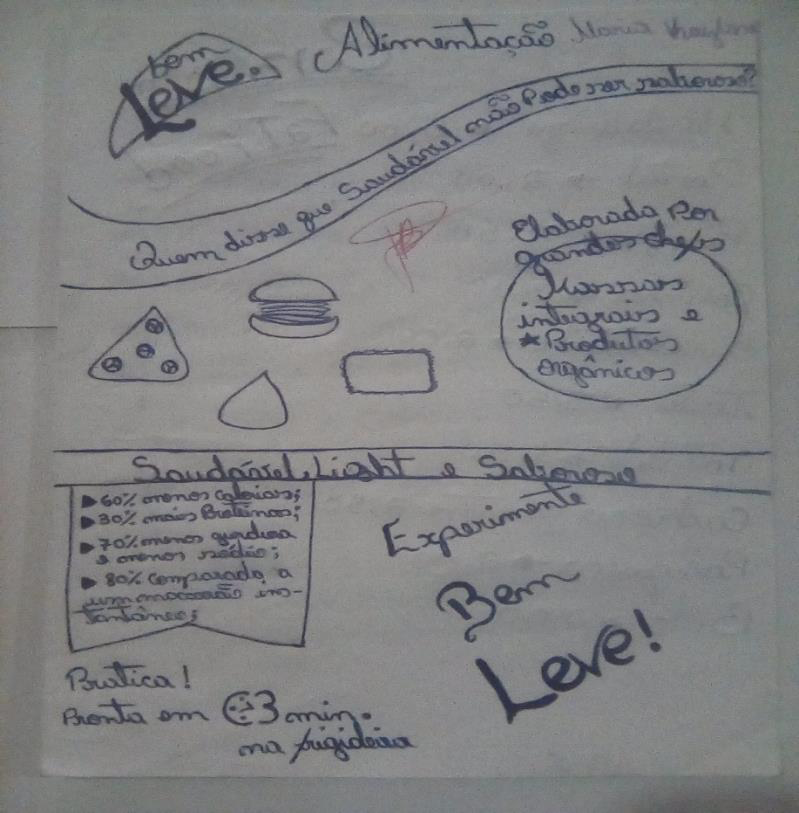 Bem
Leve.
Alimentação
Maria
Quem disse que Saudável não Pode ser saboroso?
Elaborada Por
grandes chefs
Massas
integrais e
* Produtos
orgânicos
Saudável, Light e Saboroso
▶ 60% menos calorias;
▶ 30% mais Proteínas;
▶ 70% menos gordura
e menos sódio;
▶ 80% comparado a
um macarrão ins-
tantâneo;
Experimente
Bem
Leve!
Pratica!
Pronta em 3 min.
na frigideira